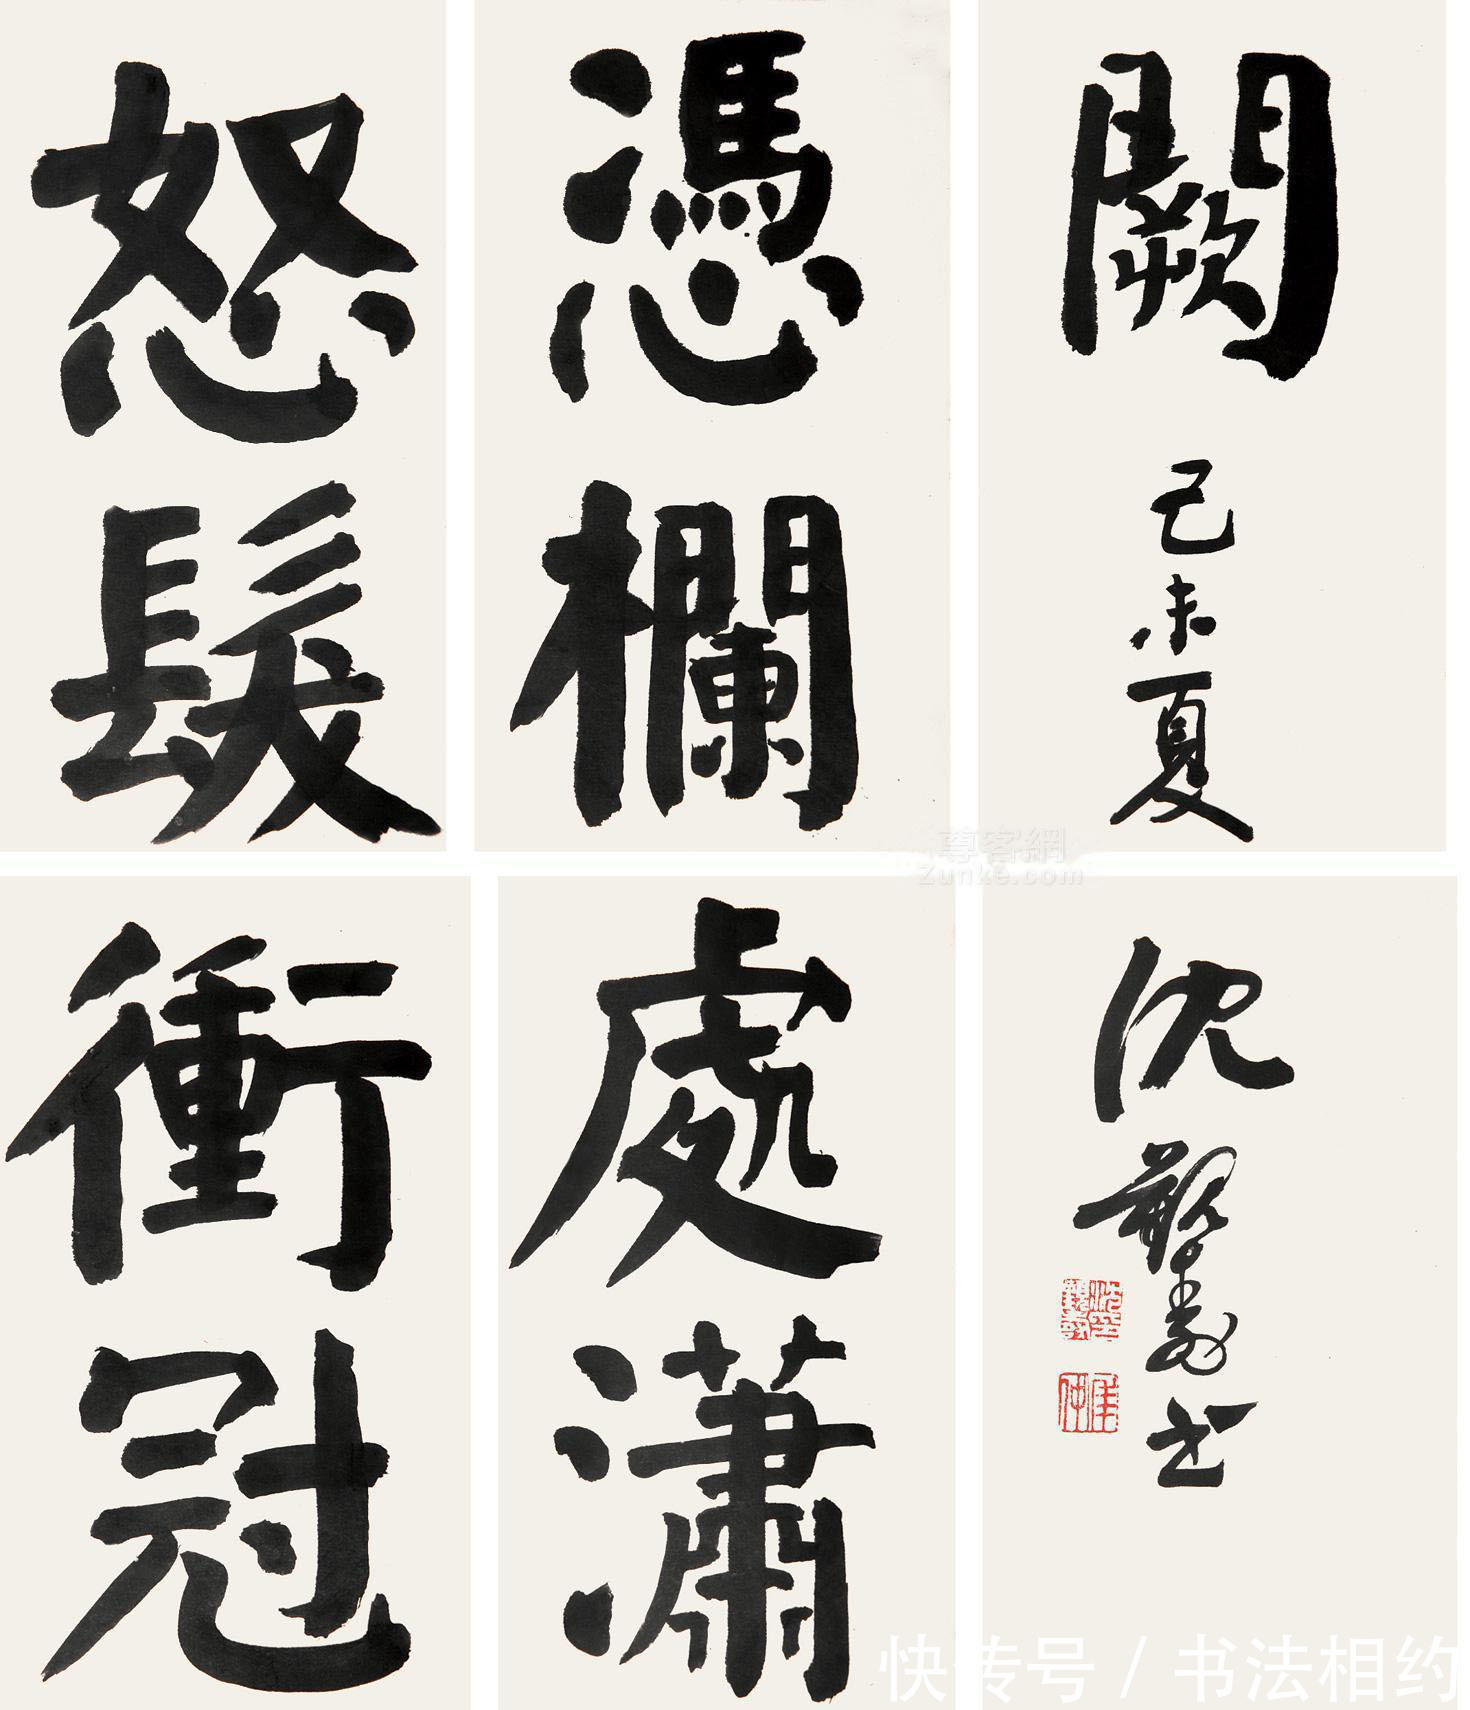 怒髮
衝冠
憑欄
處瀟
闕
己未夏
沈覲壽书
沈覲壽
尊客網
Zunke.com
快传号 / 书法相约